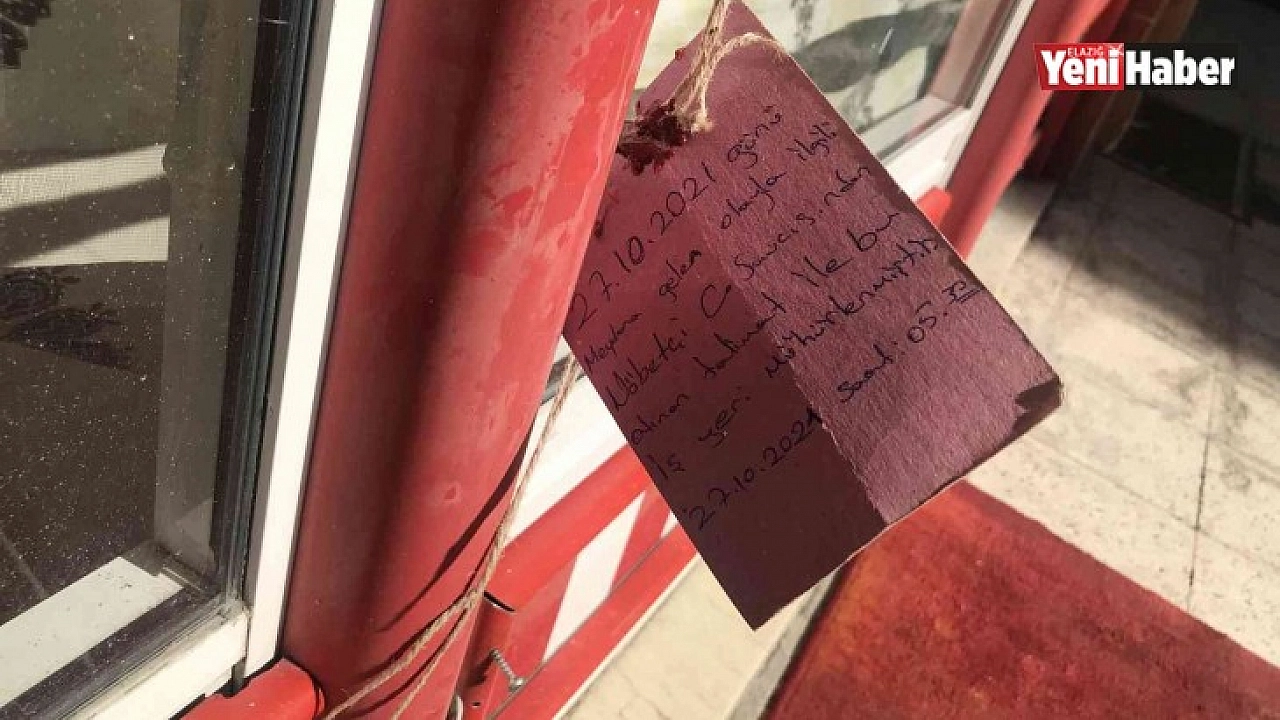 ELAZIĞ
Yeni Haber
27.10.2021 günü
Meydana gelen olayla ilgili
Nöbetçi C. Savcısından
alınan talimat ile bu
İş yeri Mühürlenmiştir.
27.10.2021 saat: 05.30